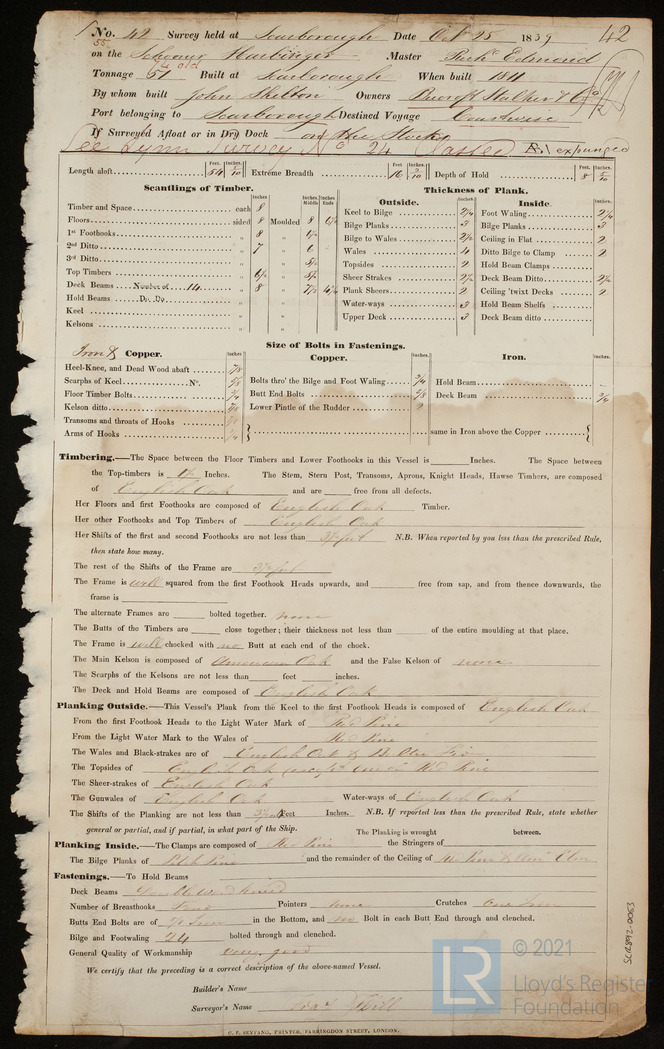 No. 42 Survey held at Scarborough Date Oct 25 1839 42
on the Schooner Harbinger Master Edmond
Tonnage 51 Built at Scarborough When built 1811
By whom built John Skelton Owners
Port belonging to Scarborough Destined Voyage Coastwise
If Surveyed Afloat or in Dry Dock on the Stocks
See Lynn Survey No 24 Classed expunged
Length aloft 54 Extreme Breadth 16 Depth of Hold 8
Feet. Inches.
Scantlings of Timber.
Timber and Space each 8
Floors sided 8 Moulded 8
1st Foothooks 8
2nd Ditto 7 6
3rd Ditto
Top Timbers
Deck Beams Number of 14 8
Hold Beams Do. Do.
Keel
Kelsons
Thickness of Plank.
Outside.
Keel to Bilge 2½
Bilge Planks 3
Bilge to Wales 2½
Wales 4
Topsides 2
Sheer Strakes 2½
Plank Sheers 2
Water-ways 3
Upper Deck 3
Inside.
Foot Waling 2½
Bilge Planks 3
Ceiling in Flat 2
Ditto Bilge to Clamp 2
Hold Beam Clamps
Deck Beam Ditto 2½
Ceiling 'twixt Decks 2
Hold Beam Shelfs
Deck Beam ditto
Size of Bolts in Fastenings.
Iron & Copper.
Heel-Knee, and Dead Wood abaft 7/8
Scarphs of Keel No.
Floor Timber Bolts
Kelson ditto
Transoms and throats of Hooks
Arms of Hooks
Copper.
Bolts thro' the Bilge and Foot Waling 3/4
Butt End Bolts 5/8
Lower Pintle of the Rudder
Iron.
Hold Beam
Deck Beam 3/4
same in Iron above the Copper
Timbering.—The Space between the Floor Timbers and Lower Foothooks in this Vessel is Inches. The Space between
the Top-timbers is 1½ Inches. The Stem, Stern Post, Transoms, Aprons, Knight Heads, Hawse Timbers, are composed
of English Oak and are free from all defects.
Her Floors and first Foothooks are composed of English Oak Timber.
Her other Foothooks and Top Timbers of English Oak
Her Shifts of the first and second Foothooks are not less than 3½ feet N.B. When reported by you less than the prescribed Rule,
then state how many.
The rest of the Shifts of the Frame are 3½ feet
The Frame is well squared from the first Foothook Heads upwards, and free from sap, and from thence downwards, the
frame is
The alternate Frames are bolted together. none
The Butts of the Timbers are close together; their thickness not less than of the entire moulding at that place.
The Frame is well chocked with no Butt at each end of the chock.
The Main Kelson is composed of American Oak and the False Kelson of none
The Scarphs of the Kelsons are not less than feet inches.
The Deck and Hold Beams are composed of English Oak
Planking Outside.—This Vessel's Plank from the Keel to the first Foothook Heads is composed of English Oak
From the first Foothook Heads to the Light Water Mark of Red Pine
From the Light Water Mark to the Wales of Red Pine
The Wales and Black-strakes are of English Oak & Baltic Fir
The Topsides of English Oak Red Pine
The Sheer-strakes of English Oak
The Gunwales of English Oak Water-ways of English Oak
The Shifts of the Planking are not less than Feet Inches. N.B. If reported less than the prescribed Rule, state whether
general or partial, and if partial, in what part of the Ship. The Planking is wrought between.
Planking Inside.—The Clamps are composed of Red Pine the Stringers of
The Bilge Planks of Pitch Pine and the remainder of the Ceiling of Red Pine & Amn Elm
Fastenings.—To Hold Beams
Deck Beams
Number of Breasthooks Pointers none Crutches One Iron
Butts End Bolts are of in the Bottom, and no Bolt in each Butt End through and clenched.
Bilge and Footwaling 24 bolted through and clenched.
General Quality of Workmanship very good
We certify that the preceding is a correct description of the above-named Vessel.
Builder's Name
Surveyor's Name Hill
C. F. SEYFANG, PRINTER, FARRINGDON STREET, LONDON.
LR © 2021
Lloyd's Register
Foundation